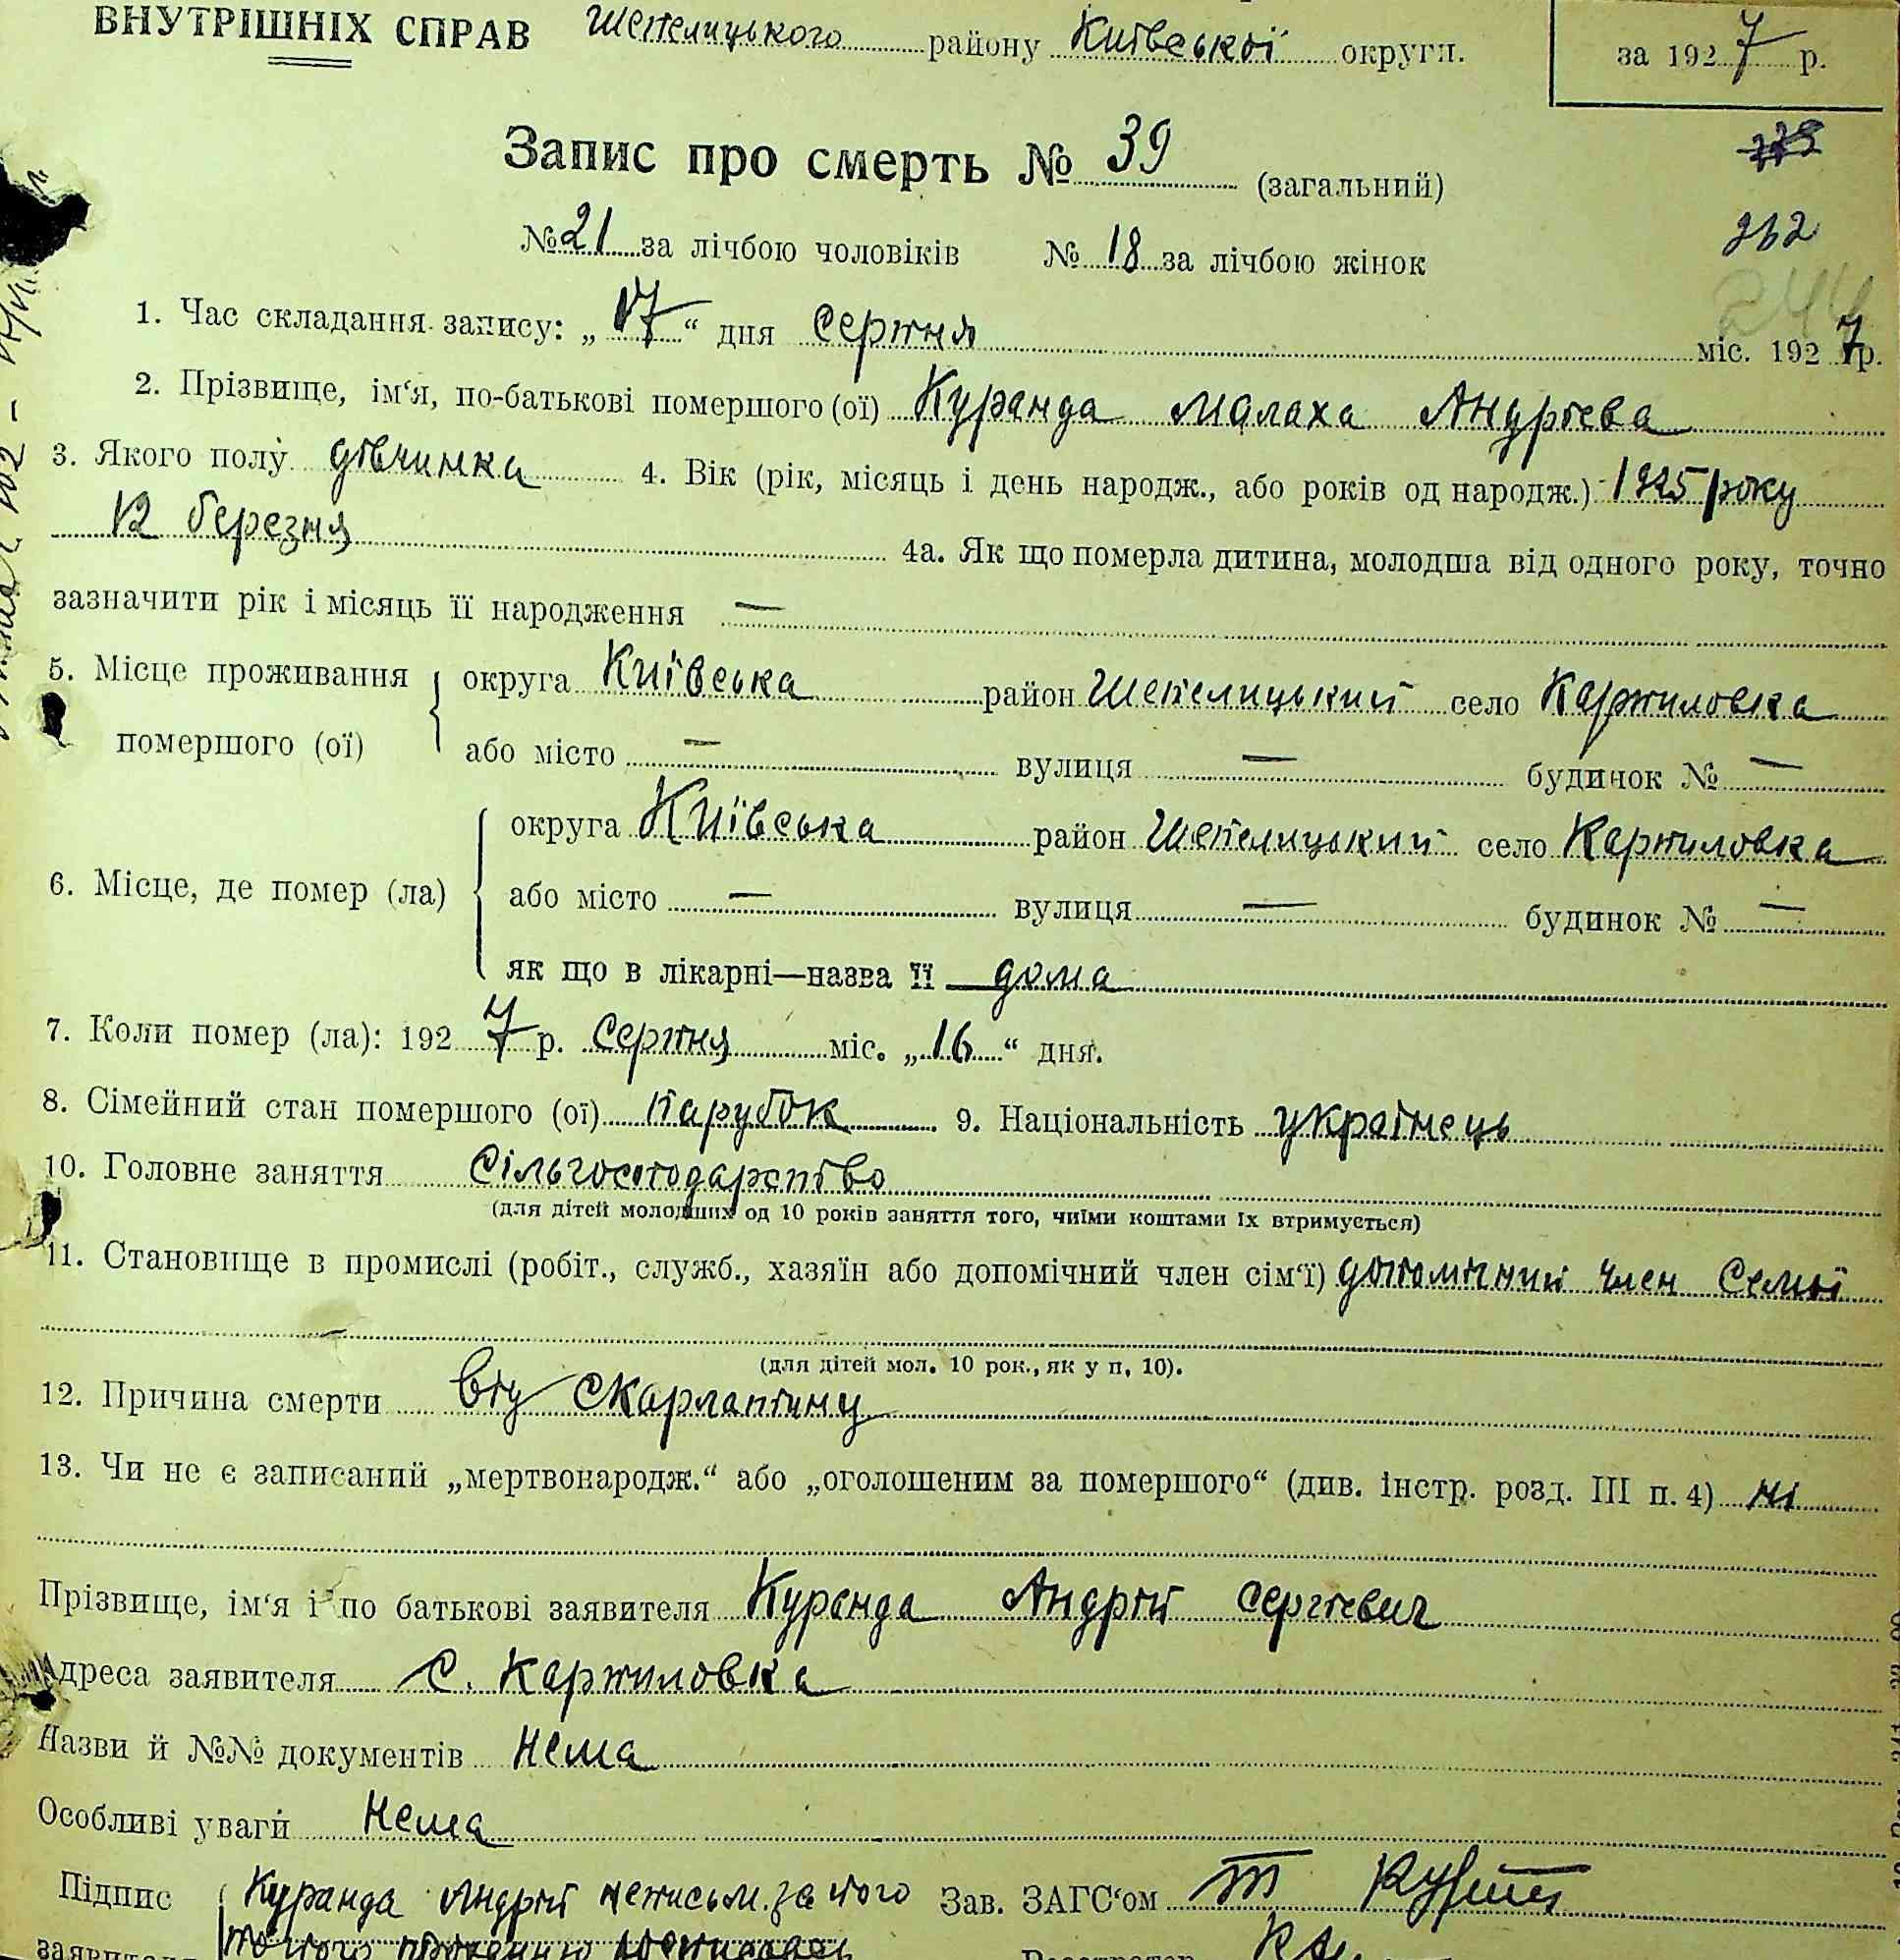 ВНУТРІШНІХ СПРАВ Шепелицького району Київської округи. за 1927 р.
Запис про смерть № 39 (загальний)
№ 21 за лічбою чоловіків № 18 за лічбою жінок 262
244
1. Час складання запису: „17“ дня серпня міс. 1927 р.
2. Прізвище, ім‘я, по-батькові помершого (ої) Куранда Малаха Андрієва
3. Якого полу дівчинка 4. Вік (рік, місяць і день народж., або років од народж.) 1925 року
12 березня 4а. Як що померла дитина, молодша від одного року, точно
зазначити рік і місяць її народження —
5. Місце проживання округа Київська район Шепелицький село Карпиловка
помершого (ої) або місто — вулиця — будинок № —
округа Київська район Шепелицький село Карпиловка
6. Місце, де помер (ла) або місто — вулиця — будинок № —
як що в лікарні—назва її дома
7. Коли помер (ла): 1927 р. серпня міс. „16“ дня.
8. Сімейний стан помершого (ої) парубок 9. Національність українець
10. Головне заняття сільгосподарство
(для дітей молодших од 10 років заняття того, чиїми коштами їх втримується)
11. Становище в промислі (робіт., служб., хазяїн або допомічний член сім‘ї) допомічний член семьї
(для дітей мол. 10 рок., як у п. 10).
12. Причина смерти від скарлатину
13. Чи не є записаний „мертвонародж.“ або „оголошеним за помершого“ (див. інстр. розд. III п. 4) ні
Прізвище, ім‘я і по батькові заявителя Куранда Андрій Сергієвич
Адреса заявителя с. Карпиловка
Назви й №№ документів нема
Особливі уваги нема
Підпис Куранда Андрій неписьм. за його Зав. ЗАГС‘ом
заявителя